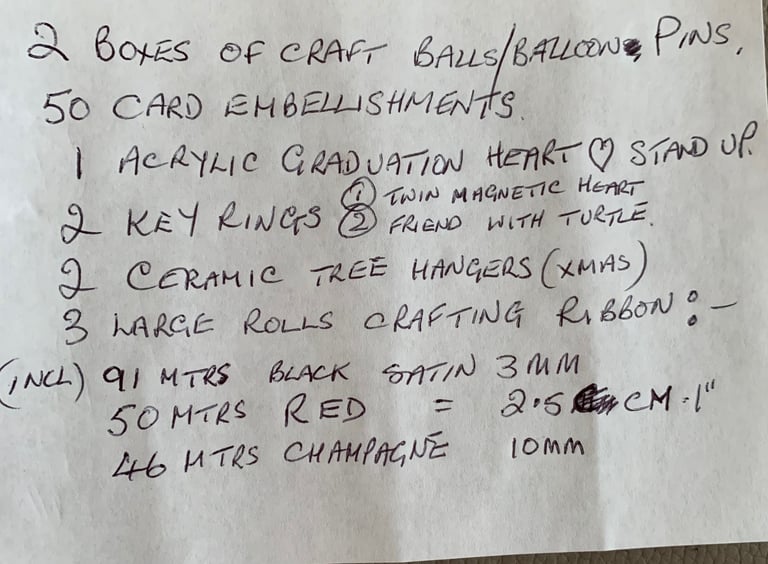 2 BOXES OF CRAFT BALLS/BALLOON, PINS,
50 CARD EMBELLISHMENTS.
1 ACRYLIC GRADUATION HEART ♡ STAND UP.
2 KEY RINGS ① TWIN MAGNETIC HEART
② FRIEND WITH TURTLE.
2 CERAMIC TREE HANGERS (XMAS)
3 LARGE ROLLS CRAFTING RIBBON :-
(INCL) 91 MTRS BLACK SATIN 3MM
50 MTRS RED = 2.5 CM.1"
46 MTRS CHAMPAGNE 10MM